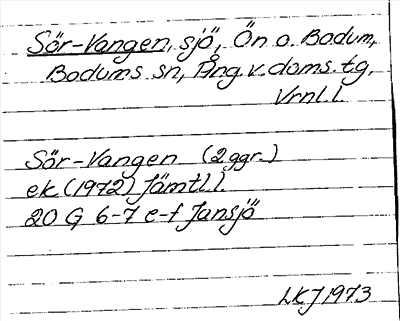 Sör-Vangen, sjö, Ön o. Bodum,
Bodums sn, Ång. v. doms. tg,
Vrnl. l.
Sör-Vangen (2 ggr.)
ek (1972) Jämtl. l.
20 G 6-7 e-f Jansjö
LKJ 1973